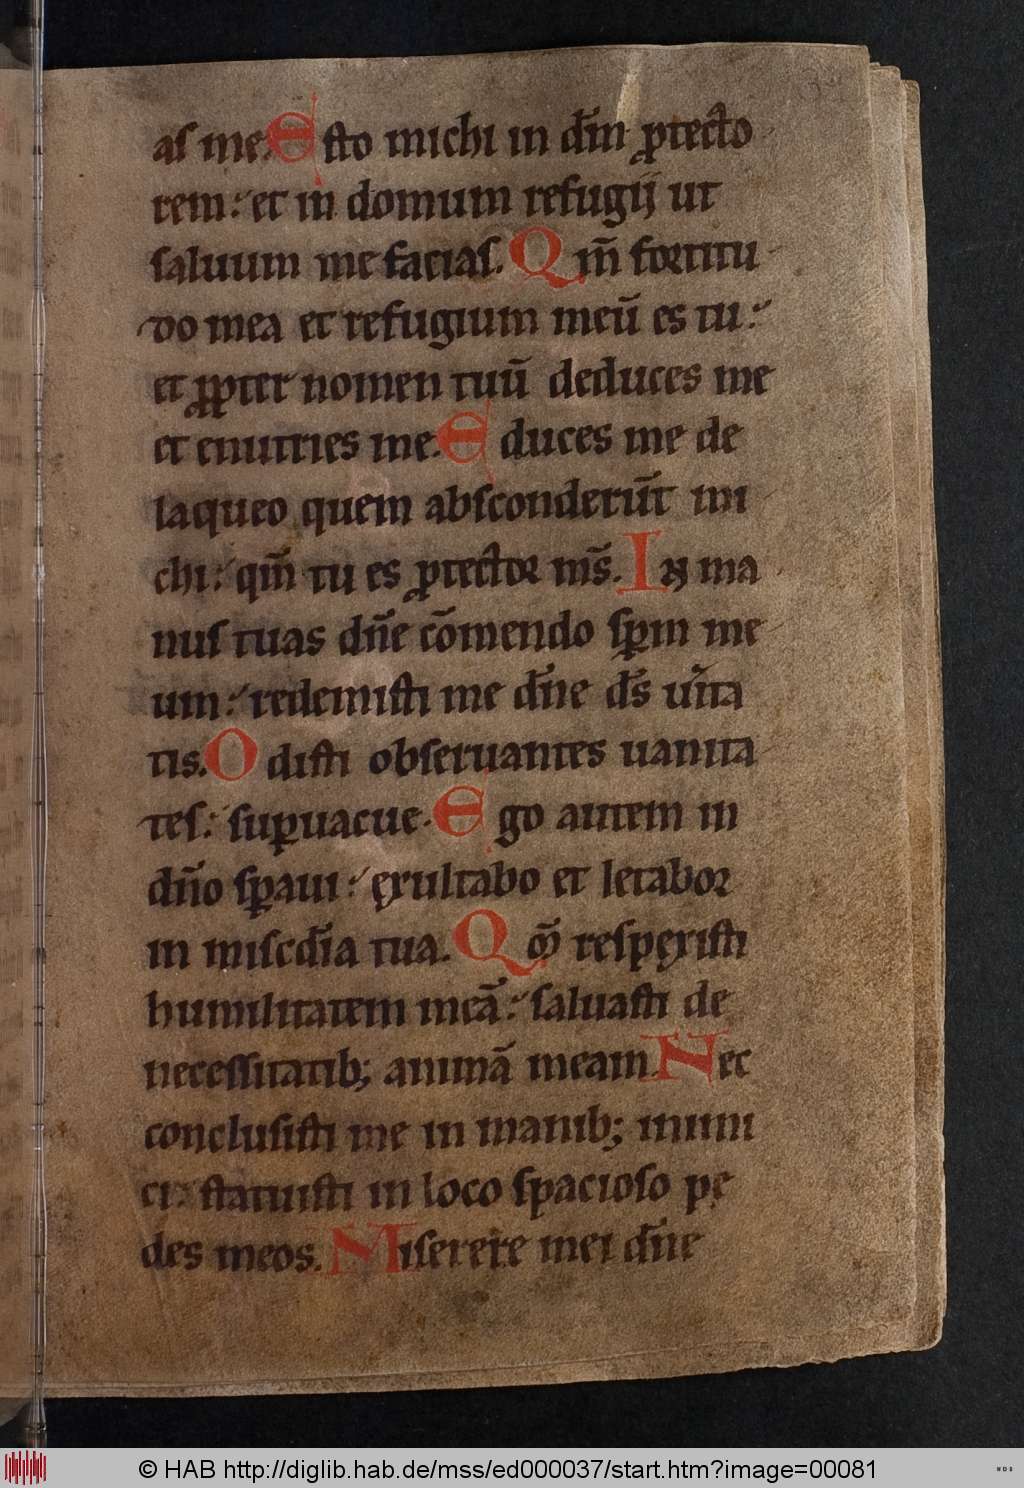 as me. Esto michi in dm̄ ꝓtecto
rem: et in domum refugij ut
saluum me facias. Qm̄ fortitu
do mea et refugium meū es tu:
et ꝓpter nomen tuū deduces me
et enutries me. Educes me de
laqueo quem absconderūt mi
chi: qm̄ tu es ꝓtector ms̄. In ma
nus tuas dn̄e cōmendo sp̄m me
um: redemisti me dn̄e ds̄ u̾ita
tis. Odisti obseruantes uanita
tes: suꝑuacue. Ego autem in
dn̄o sꝑaui: exultabo et letabor
in misc̄dia tua. Qm̄ respexisti
humilitatem meā: saluasti de
necessitatib; animā meam. Nec
conclusisti me in manib; inimi
ci: statuisti in loco spacioso pe
des meos. Miserere mei dn̄e
© HAB http://diglib.hab.de/mss/ed000037/start.htm?image=00081